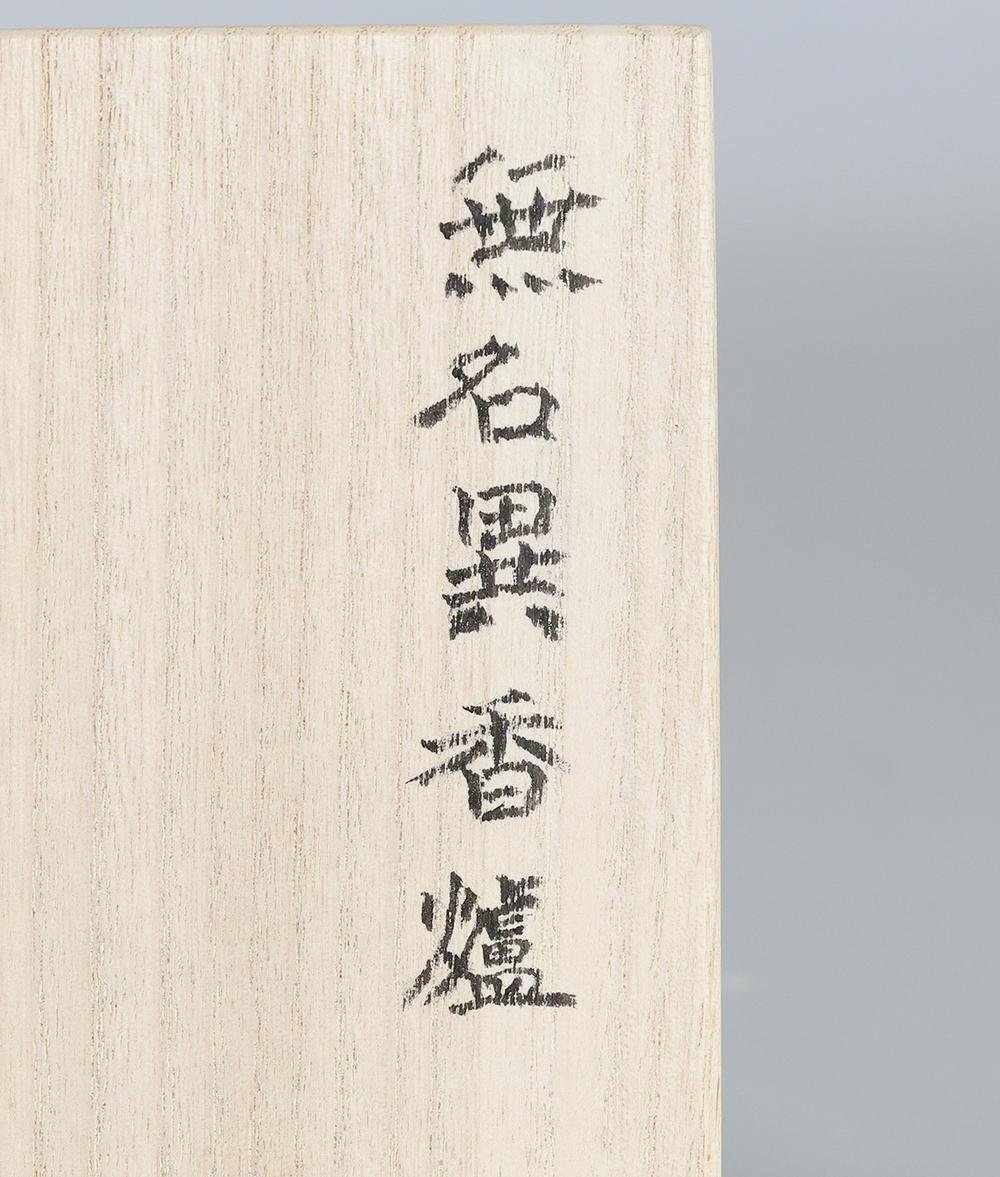 無名異香爐